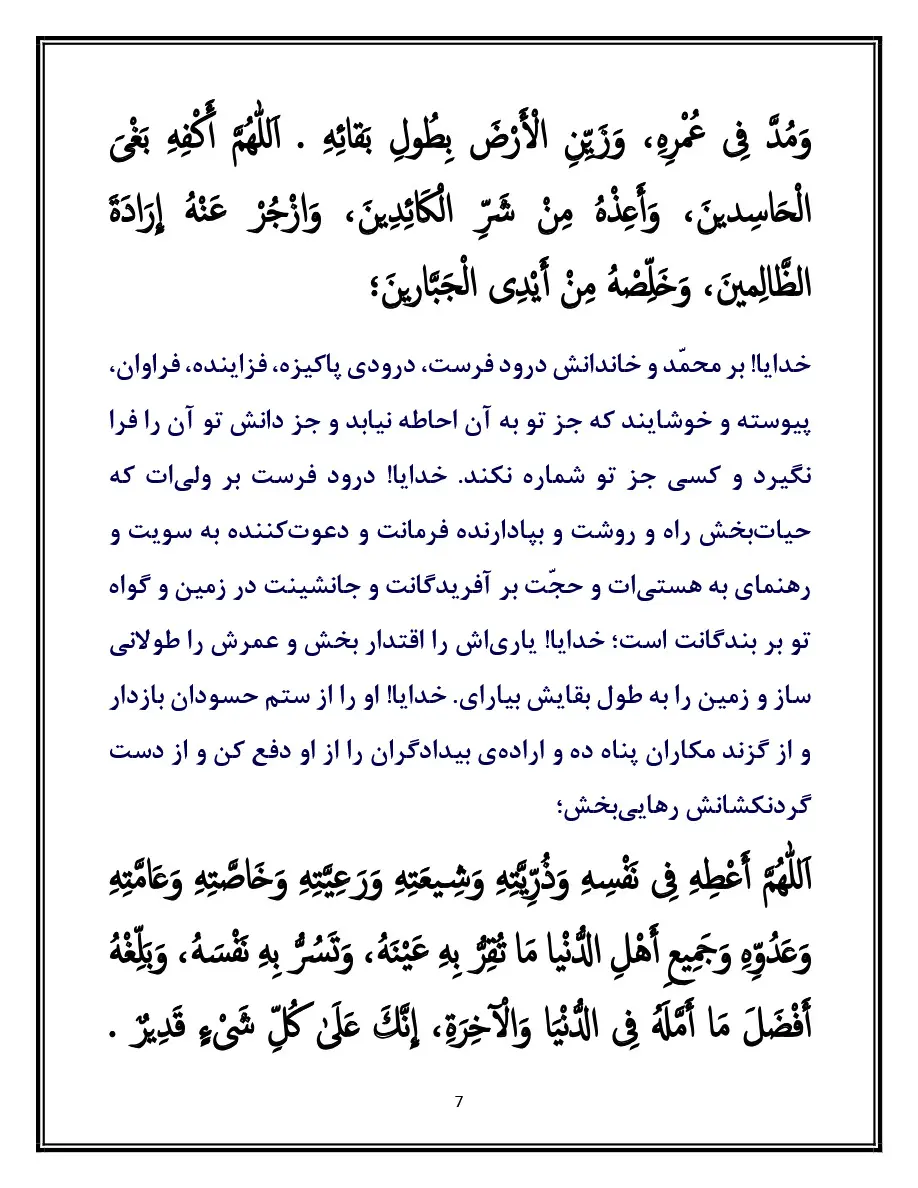 وَمُدَّ فِى عُمْرِهِ، وَزَيِّنِ الْأَرْضَ بِطُولِ بَقائِهِ . اَللّٰهُمَّ أَكْفِهِ بَغْىَ
الْحَاسِدينَ، وَأَعِذْهُ مِنْ شَرِّ الْكَائِدِينَ، وَازْجُرْ عَنْهُ إِرَادَةَ
الظَّالِمينَ، وَخَلِّصْهُ مِنْ أَيْدِى الْجَبَّارينَ؛
خدایا! بر محمّد و خاندانش درود فرست، درودی پاکیزه، فزاینده، فراوان،
پیوسته و خوشایند که جز تو به آن احاطه نیابد و جز دانش تو آن را فرا
نگیرد و کسی جز تو شماره نکند. خدایا! درود فرست بر ولی‌ات که
حیات‌بخش راه و روشت و بپادارنده فرمانت و دعوت‌کننده به سویت و
رهنمای به هستی‌ات و حجّت بر آفریدگانت و جانشینت در زمین و گواه
تو بر بندگانت است؛ خدایا! یاری‌اش را اقتدار بخش و عمرش را طولانی
ساز و زمین را به طول بقایش بیارای. خدایا! او را از ستم حسودان بازدار
و از گزند مکاران پناه ده و اراده‌ی بیدادگران را از او دفع کن و از دست
گردنکشانش رهایی‌بخش؛
اَللّٰهُمَّ أَعْطِهِ فِى نَفْسِهِ وَذُرِّيَّتِهِ وَشِيعَتِهِ وَرَعِيَّتِهِ وَخَاصَّتِهِ وَعَامَّتِهِ
وَعَدُوِّهِ وَجَمِيعِ أَهْلِ الدُّنْيا مَا تُقِرُّ بِهِ عَيْنَهُ، وَتَسُرُّ بِهِ نَفْسَهُ، وَبَلِّغْهُ
أَفْضَلَ مَا أَمَّلَهُ فِى الدُّنْيَا وَالْآخِرَةِ، إِنَّكَ عَلَىٰ كُلِّ شَىْءٍ قَدِيرٌ .
7